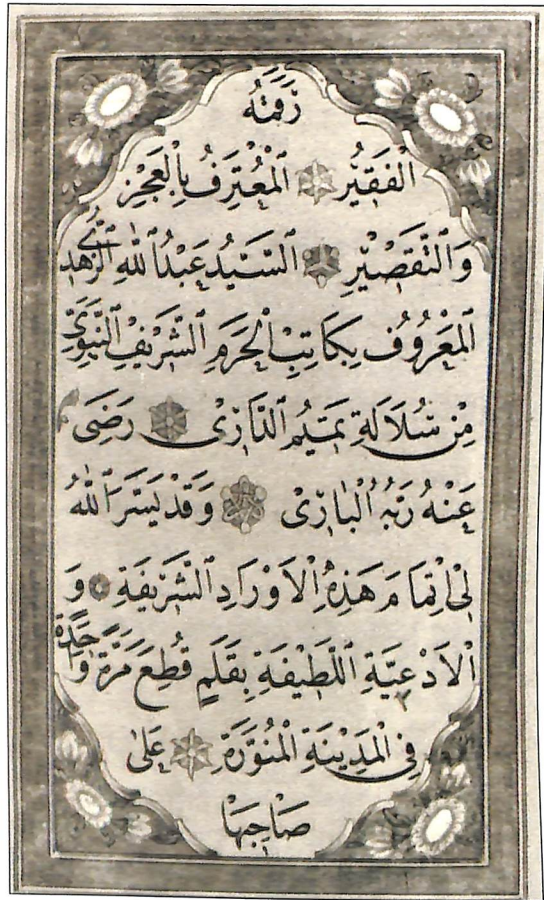 رَقَمَتْهُ
الْفَقِيْرُ الْمُعْتَرِفُ بِالْعَجْزِ
وَالتَّقْصِيْرِ السَّيِّدُ عَبْدُ اللّٰهِ الزُّهْدِى
الْمَعْرُوْفُ بِكَاتِبِ الْحَرَمِ الشَّرِيْفِ النَّبَوِىِّ
مِنْ سُلَالَةِ تَمِيْمِ الدَّارِىْ رَضِىَ
عَنْهُ رَبُّهُ الْبَارِىْ وَقَدْ يَسَّرَ اللّٰهُ
لِىْ اِتْمَامَ هَذِهِ الْاَوْرَادِ الشَّرِيْفَةِ وَ
الْاَدْعِيَّةِ اللَّطِيْفَةِ بِقَلَمٍ قُطِعَ مَرَّةً وَاحِدَةً
فِى الْمَدِيْنَةِ الْمُنَوَّرَةِ عَلٰى
صَاحِبِهَا